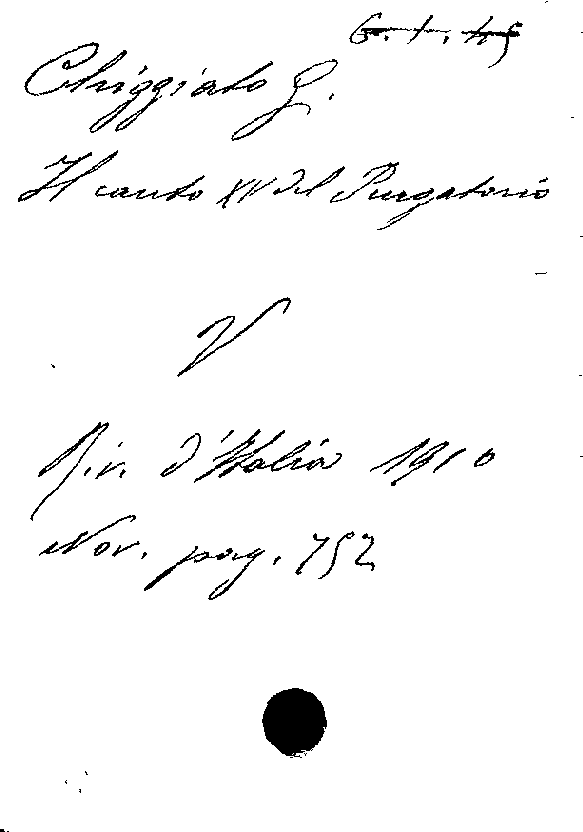 6.1.45
Chiggiato G.
Il canto XV del Purgatorio
V
Riv. d'Italia 1910
Nov. pag. 752